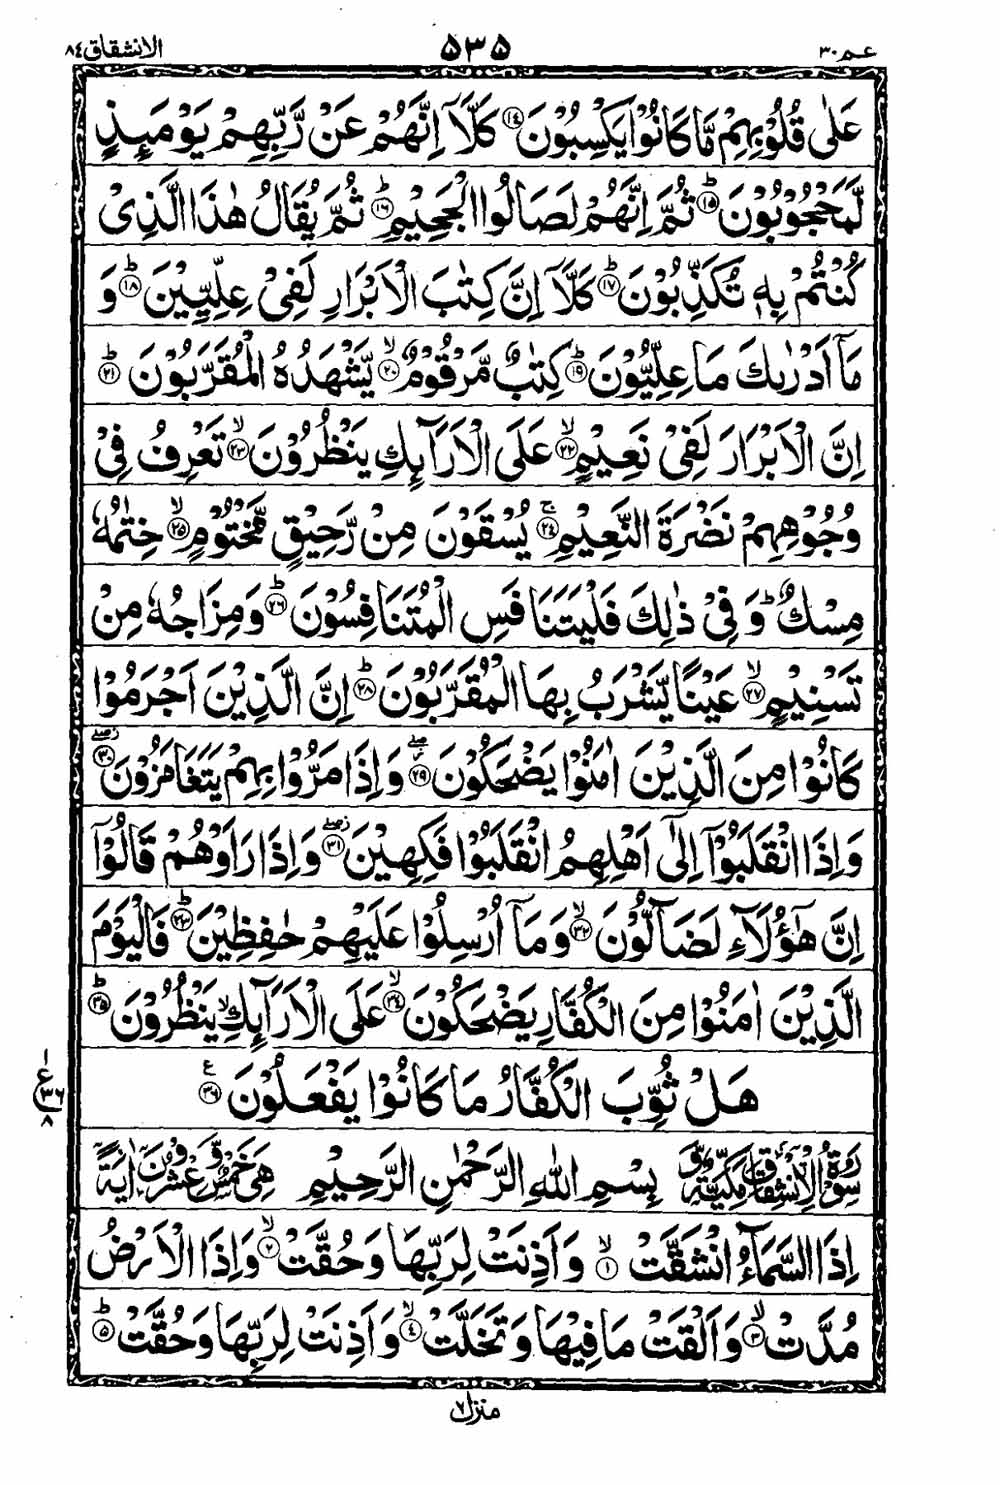 عـم ٣٠ ۵۳۵ الانشقاق ٨٤
عَلٰى قُلُوْبِهِمْ مَّا كَانُوْا يَكْسِبُوْنَ ۝١٤ كَلَّاۤ اِنَّهُمْ عَنْ رَّبِّهِمْ يَوْمَىِٕذٍ
لَّمَحْجُوْبُوْنَ ۝١٥ؕ ثُمَّ اِنَّهُمْ لَصَالُوا الْجَحِيْمِ ۝١٦ؕ ثُمَّ يُقَالُ هٰذَا الَّذِىْ
كُنْتُمْ بِهٖ تُكَذِّبُوْنَ ۝١٧ؕ كَلَّاۤ اِنَّ كِتٰبَ الْاَبْرَارِ لَفِىْ عِلِّيِّيْنَ ۝١٨ؕ وَ
مَاۤ اَدْرٰىكَ مَا عِلِّيُّوْنَ ۝١٩ؕ كِتٰبٌ مَّرْقُوْمٌ ۝٢٠ۙ يَّشْهَدُهُ الْمُقَرَّبُوْنَ ۝٢١ؕ
اِنَّ الْاَبْرَارَ لَفِىْ نَعِيْمٍ ۝٢٢ۙ عَلَى الْاَرَآىِٕكِ يَنْظُرُوْنَ ۝٢٣ۙ تَعْرِفُ فِىْ
وُجُوْهِهِمْ نَضْرَةَ النَّعِيْمِ ۝٢٤ۚ يُسْقَوْنَ مِنْ رَّحِيْقٍ مَّخْتُوْمٍ ۝٢٥ۙ خِتٰمُهٗ
مِسْكٌ ؕ وَ فِىْ ذٰلِكَ فَلْيَتَنَافَسِ الْمُتَنَافِسُوْنَ ۝٢٦ؕ وَ مِزَاجُهٗ مِنْ
تَسْنِيْمٍ ۝٢٧ۙ عَيْنًا يَّشْرَبُ بِهَا الْمُقَرَّبُوْنَ ۝٢٨ؕ اِنَّ الَّذِيْنَ اَجْرَمُوْا
كَانُوْا مِنَ الَّذِيْنَ اٰمَنُوْا يَضْحَكُوْنَ ۝٢٩ۖ وَ اِذَا مَرُّوْا بِهِمْ يَتَغَامَزُوْنَ ۝٣٠ۖ
وَ اِذَا انْقَلَبُوْۤا اِلٰۤى اَهْلِهِمُ انْقَلَبُوْا فَكِهِيْنَ ۝٣١ۖ وَ اِذَا رَاَوْهُمْ قَالُوْۤا
اِنَّ هٰۤؤُلَآءِ لَضَآلُّوْنَ ۝٣٢ۙ وَ مَاۤ اُرْسِلُوْا عَلَيْهِمْ حٰفِظِيْنَ ۝٣٣ؕ فَالْيَوْمَ
الَّذِيْنَ اٰمَنُوْا مِنَ الْكُفَّارِ يَضْحَكُوْنَ ۝٣٤ۙ عَلَى الْاَرَآىِٕكِ ۙ يَنْظُرُوْنَ ۝٣٥ؕ
هَلْ ثُوِّبَ الْكُفَّارُ مَا كَانُوْا يَفْعَلُوْنَ ۝٣٦ ع
١
ع ٣٦
٨
سُوْرَةُ الْاِنْشِقَاقِ مَكِّيَّةٌ وَّ بِسْمِ اللّٰهِ الرَّحْمٰنِ الرَّحِيْمِ هِىَ خَمْسٌ وَّ عِشْرُوْنَ اٰيَةً
اِذَا السَّمَآءُ انْشَقَّتْ ۝١ۙ وَ اَذِنَتْ لِرَبِّهَا وَ حُقَّتْ ۝٢ۙ وَ اِذَا الْاَرْضُ
مُدَّتْ ۝٣ۙ وَ اَلْقَتْ مَا فِيْهَا وَ تَخَلَّتْ ۝٤ۙ وَ اَذِنَتْ لِرَبِّهَا وَ حُقَّتْ ۝٥ؕ
منزل ٧